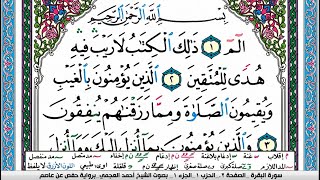 بِسْمِ ٱللَّهِ ٱلرَّحْمَٰنِ ٱلرَّحِيمِ
الٓمٓ ١ ذَٰلِكَ ٱلْكِتَٰبُ لَا رَيْبَ فِيهِ
هُدًى لِّلْمُتَّقِينَ ٢ ٱلَّذِينَ يُؤْمِنُونَ بِٱلْغَيْبِ
وَيُقِيمُونَ ٱلصَّلَوٰةَ وَمِمَّا رَزَقْنَٰهُمْ يُنفِقُونَ
٣ وَٱلَّذِينَ يُؤْمِنُونَ بِمَآ أُنزِلَ إِلَيْكَ وَمَآ أُنزِلَ
سورة البقرة . الصفحة 2 . الحزب 1 . الجزء 1 . بصوت الشيخ أحمد العجمي . برواية حفص عن عاصم